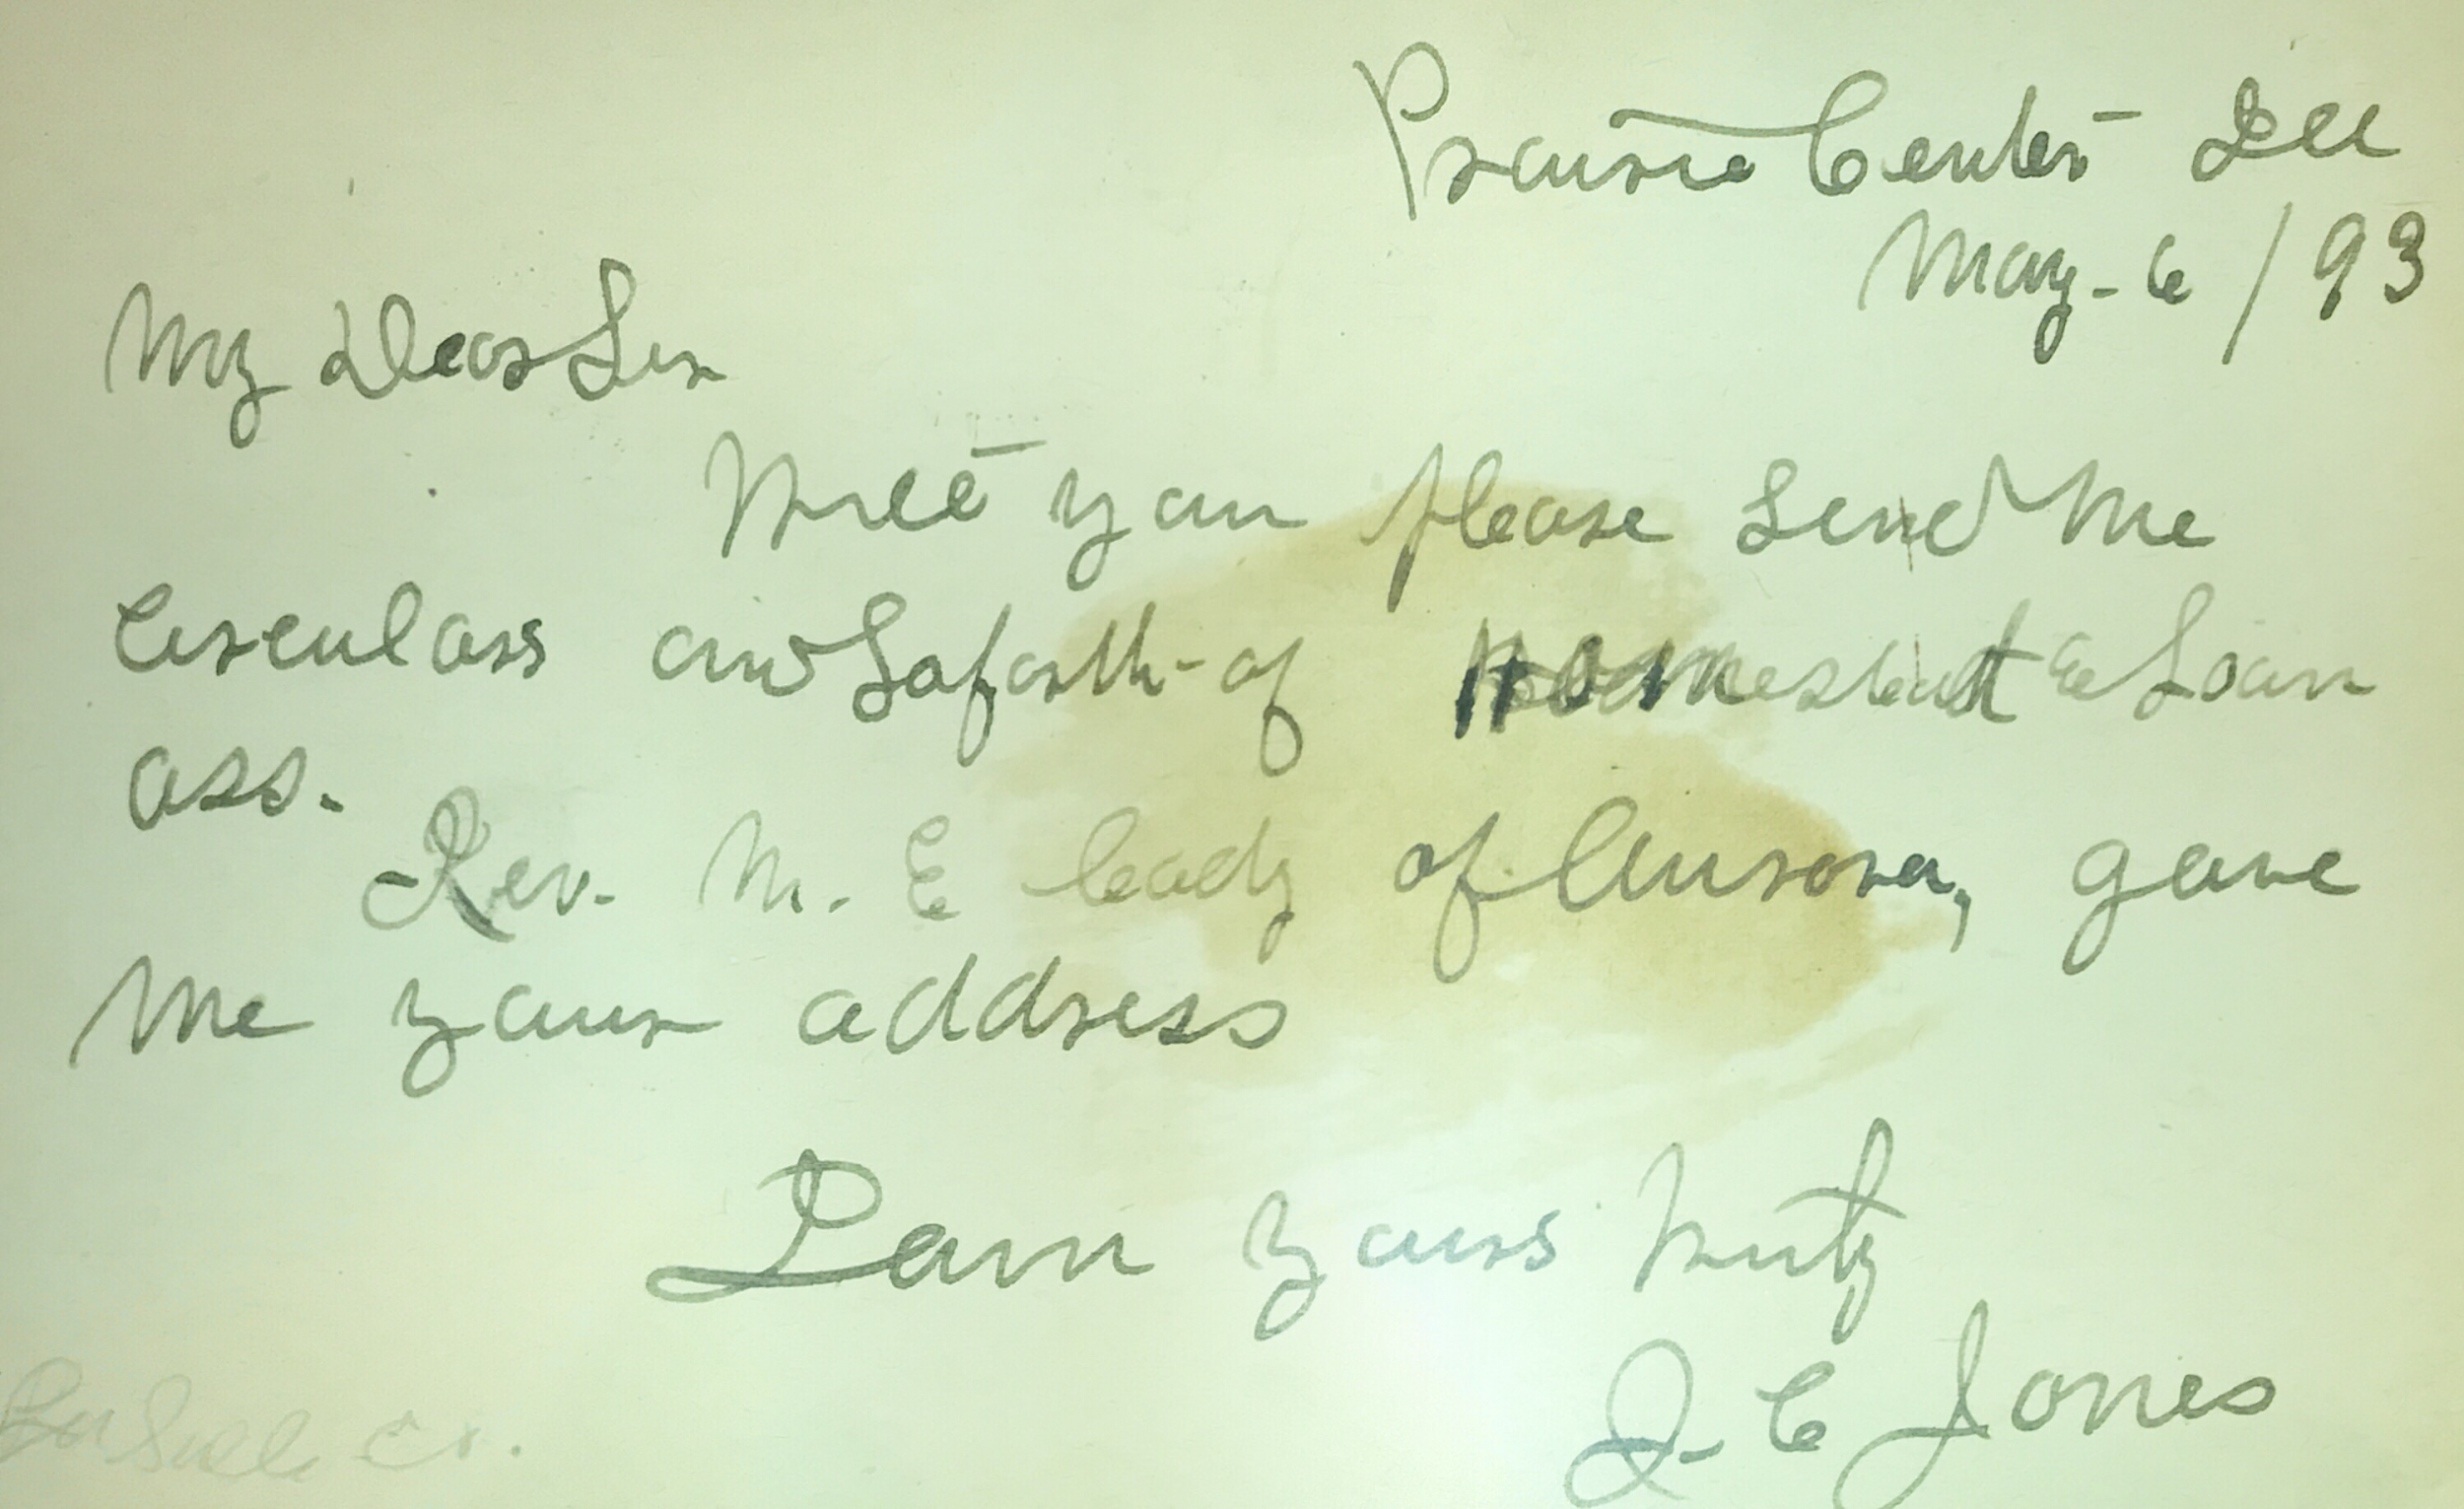 Prairie Center Ill
May-6/93
My Dear Sir
Will you please send me
Circulars and so forth-of Homestead & Loan
ass.
Rev. M. E Cady of Aurora, gave
me your address
I am yours truly
J. C Jones
La Salle Co.